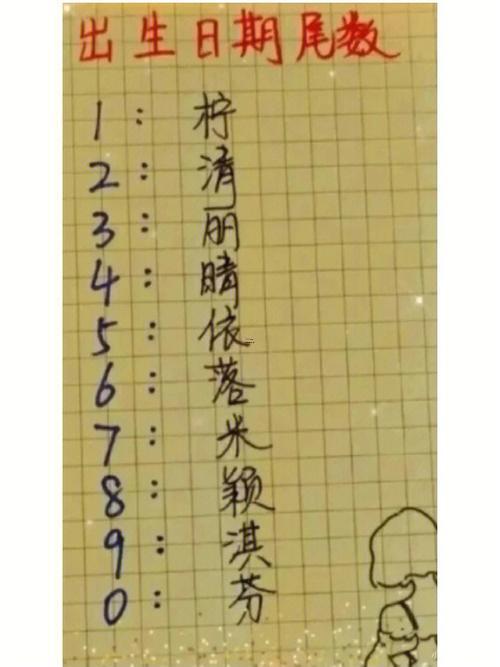 出生日期尾数
1: 柠
2: 清
3: 丽
4: 晴
5: 依
6: 落
7: 米
8: 颖
9: 淇
0: 芬